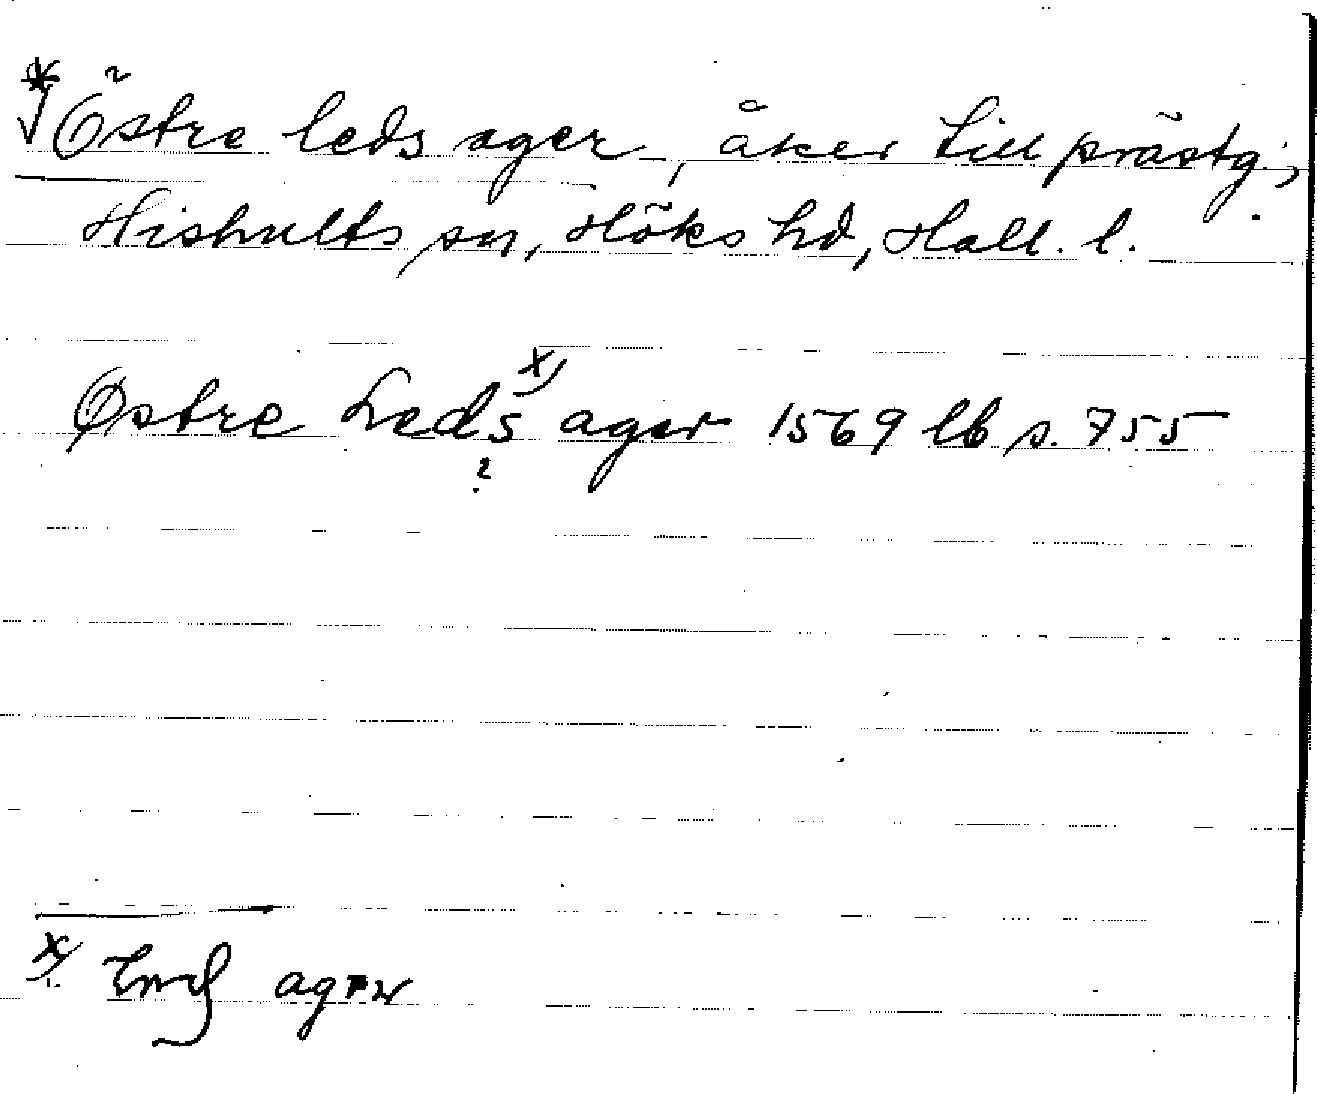 *√ Östre leds ager, åker till prästg.,
Hishults sn, Höks hd, Hall. l.
Østre Leds x) ager 1569 lb s. 755
?
x) ager